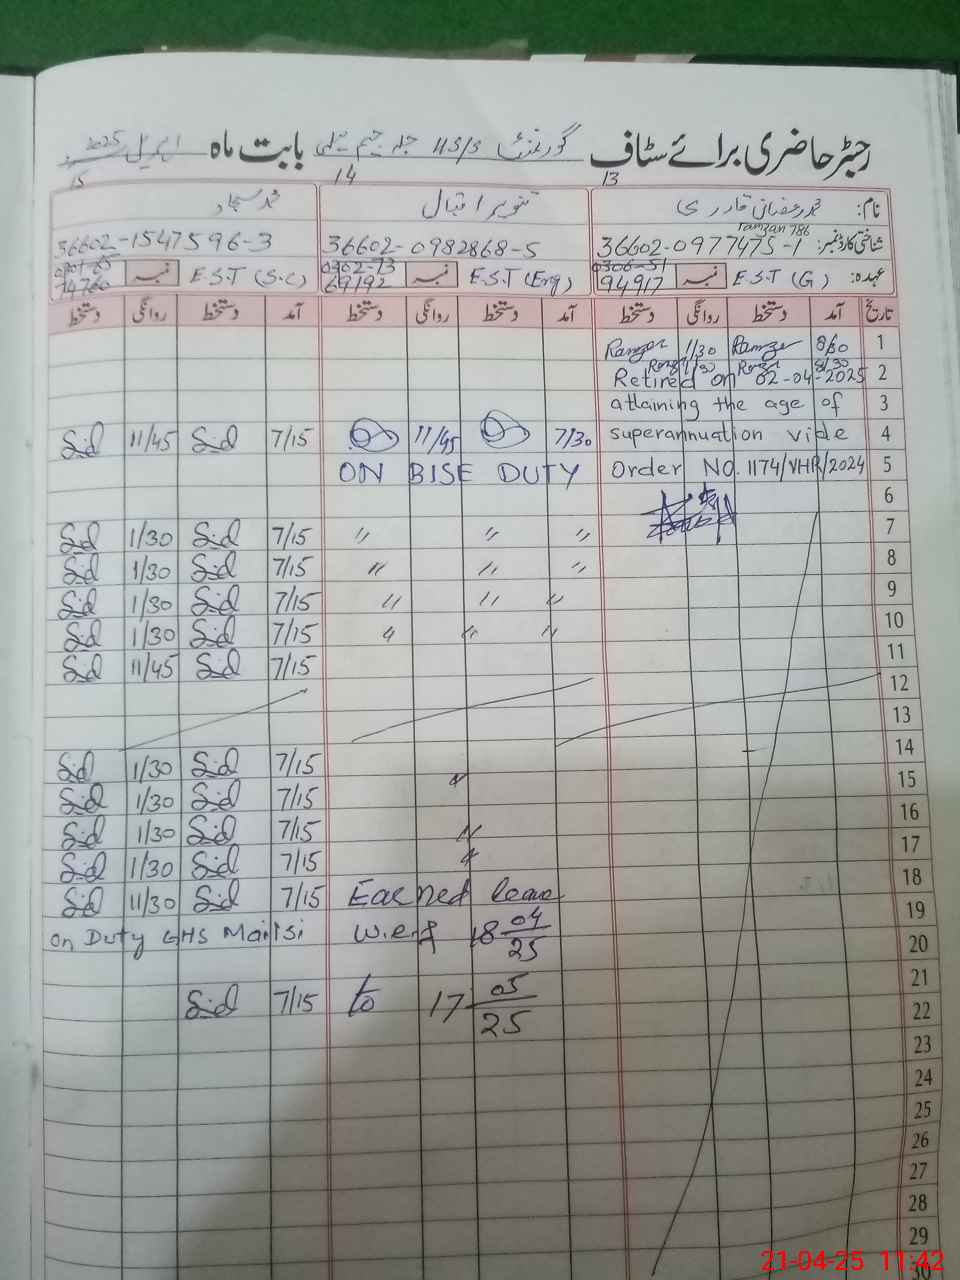 رجسٹر حاضری برائے سٹاف گورنمنٹ بابت ماہ اپریل 2025
13 14 15
نام: محمد رمضان قادری تنویر اقبال محمد سجاد
ramzan 786
شناختی کارڈ نمبر: 36602-0977475-1 36602-0982868-5 36602-1547596-3
عہدہ: E.S.T (G) نمبر 0306-51 94917 E.S.T (Eng) نمبر 0302-73 69192 E.S.T (S.C) نمبر 74760
تاریخ آمد دستخط روانگی دستخط آمد دستخط روانگی دستخط آمد دستخط روانگی دستخط
1 8/30 Ramzan 1/30 Ramzan
2 8/30 1/30
Retired on 02-04-2025
3 attaining the age of
4 superannuation vide 7/30 11/45 7/15 Sid 11/45 Sid
5 Order No. 1174/VHR/2024 ON BISE DUTY
6
7 " " " 7/15 Sid 1/30 Sid
8 " " " 7/15 Sid 1/30 Sid
9 " " " 7/15 Sid 1/30 Sid
10 " " " 7/15 Sid 1/30 Sid
11 7/15 Sid 11/45 Sid
12
13
14 " 7/15 Sid 1/30 Sid
15 7/15 Sid 1/30 Sid
16 " 7/15 Sid 1/30 Sid
17 " 7/15 Sid 1/30 Sid
18 Earned leave 7/15 Sid 11/30 Sid
19 w.e.f 18 04/25 On Duty GHS Mailsi
20
21 to 17 05/25 7/15 Sid
22
23
24
25
26
27
28
29
30
21-04-25 11:42